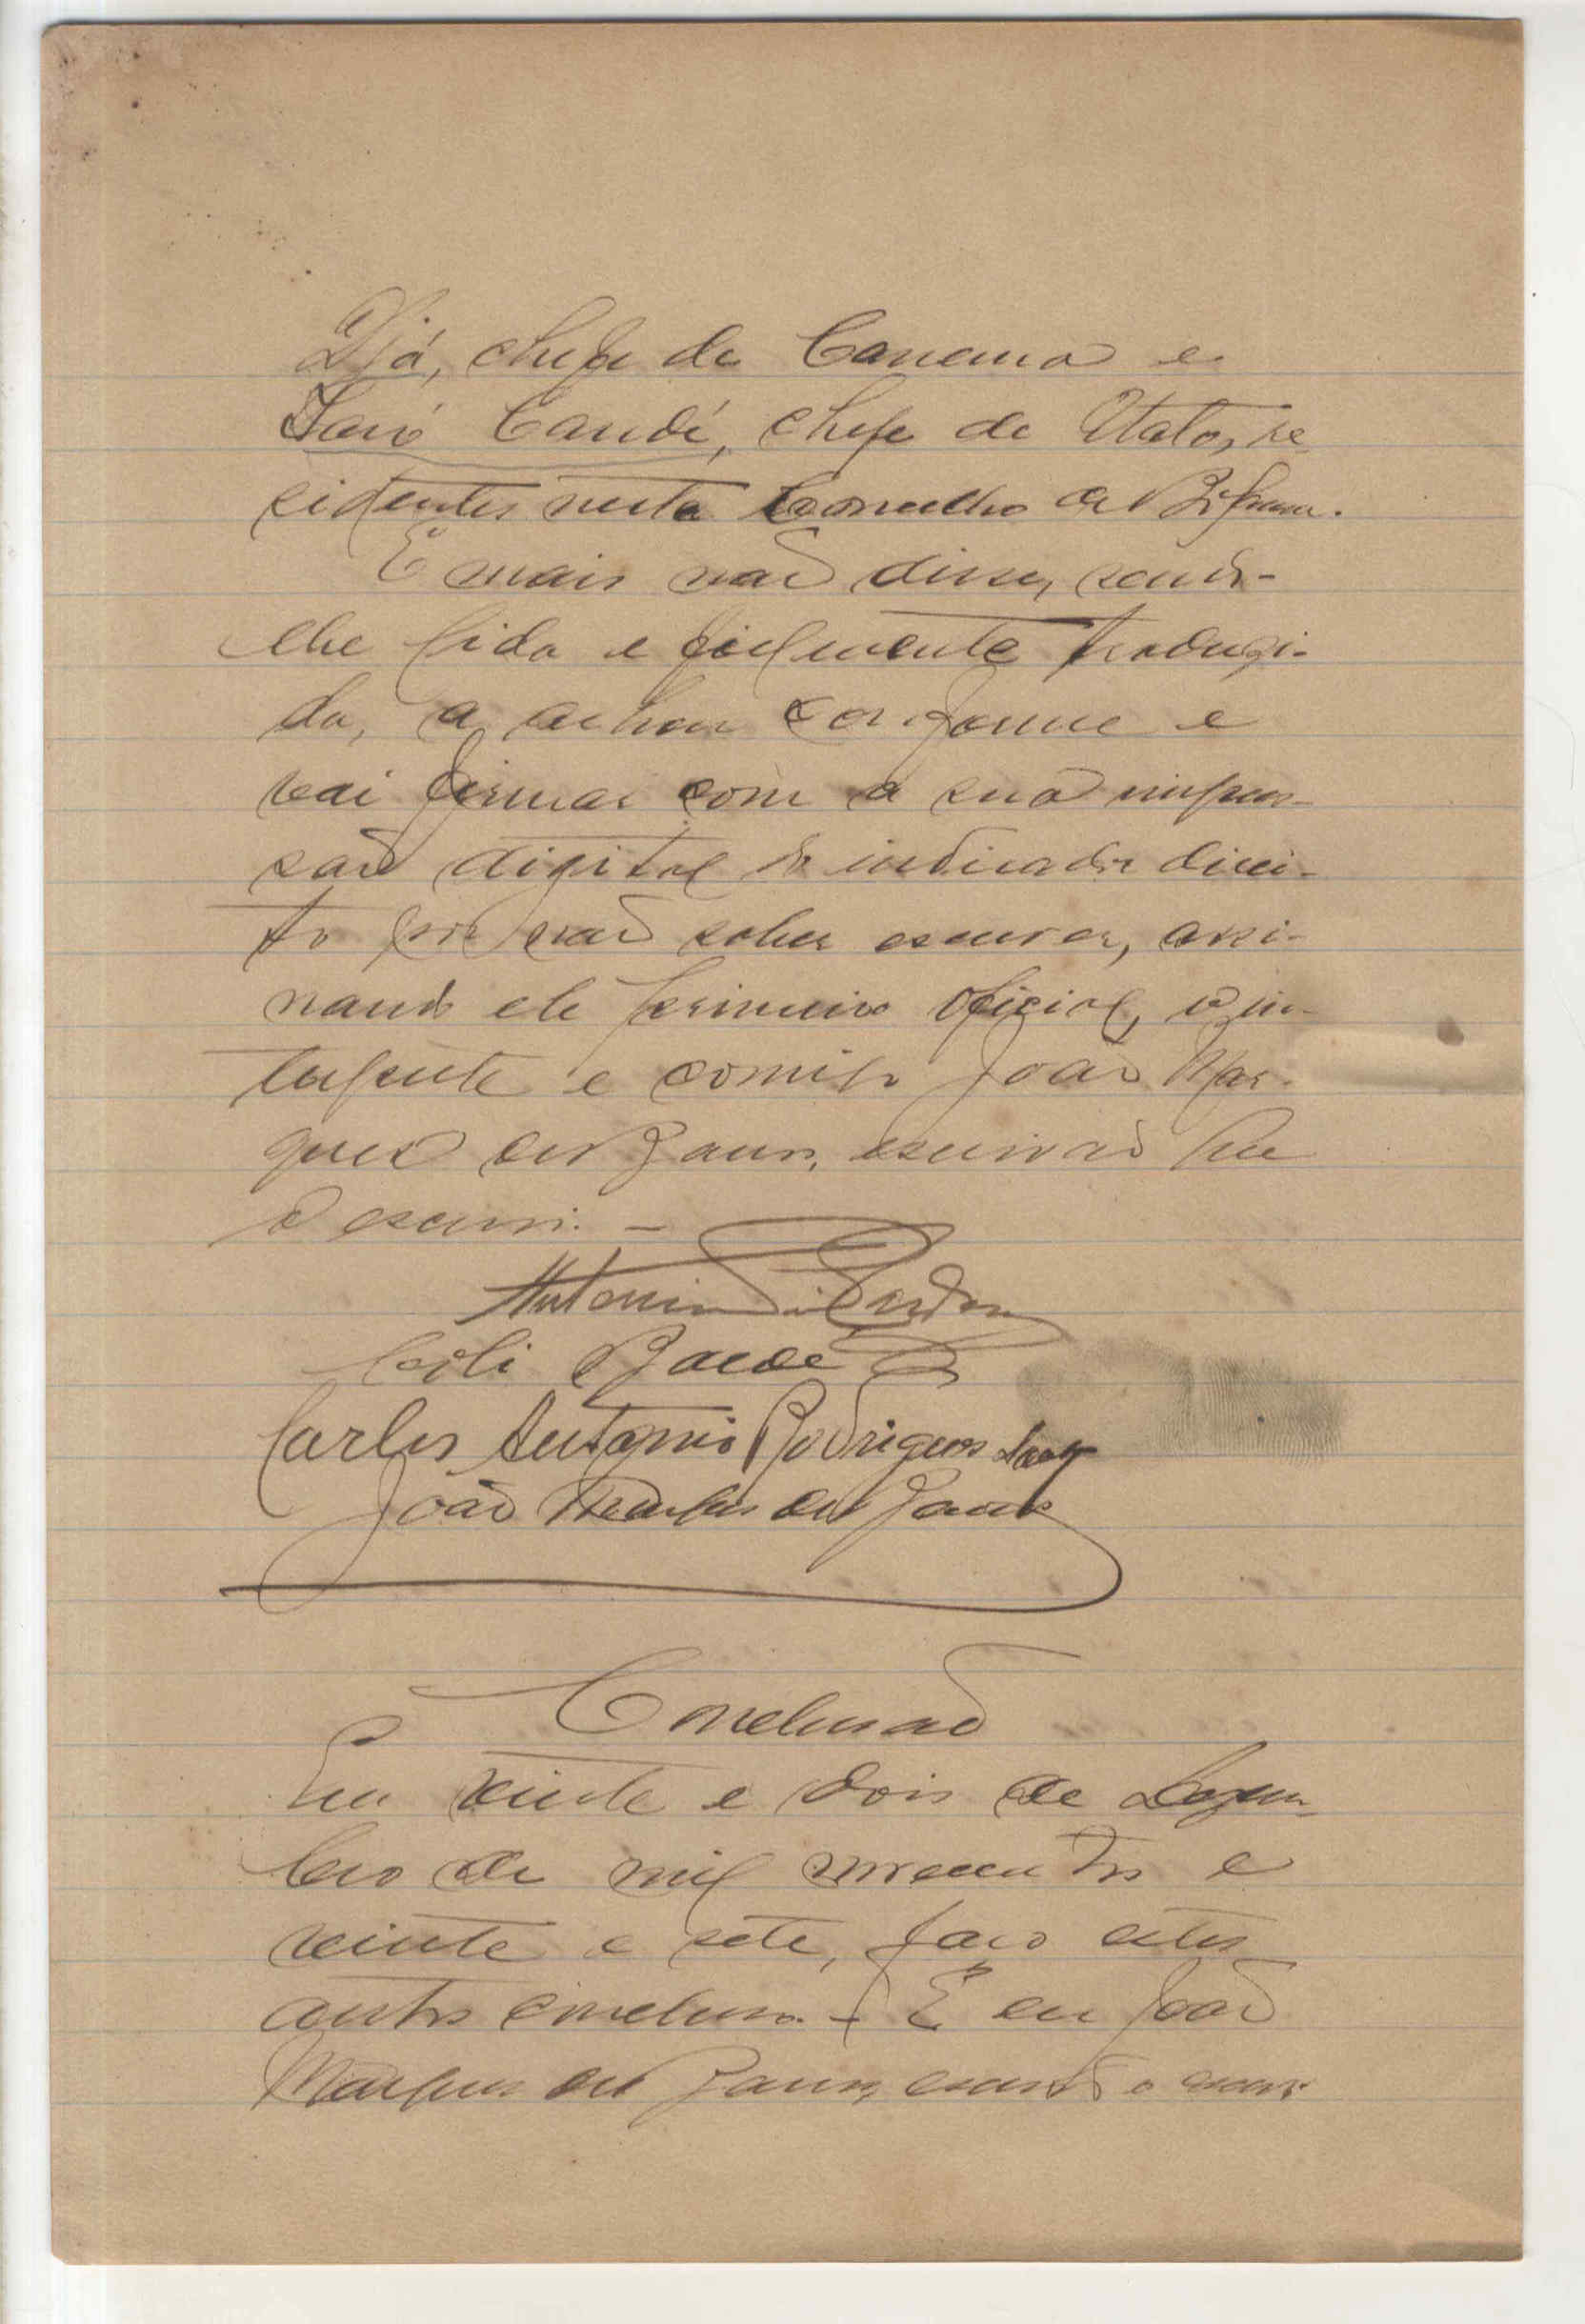 Djá, chefe de Canema e
Saró Candé, chefe de Utato, re
sidentes neste Concelho de Bafata.
E mais não disse, sendo-
lhe lida e fielmente traduzi-
da, a achou conforme e
vai firmar com a sua impres-
são digital do indicador direi-
to por não saber escrever, assi-
nando ele primeiro oficial, o in-
terprete e comigo João Mar-
ques de Barros, escrivão que
o escrevi. –
Antonio
Carlos Antonio Rodrigues
João Marques de Barros
Conclusão
Em vinte e dois de Dezem-
bro de mil novecentos e
vinte e sete, faço estes
autos conclusos. – E eu João
Marques de Barros, escrivão o escrevi